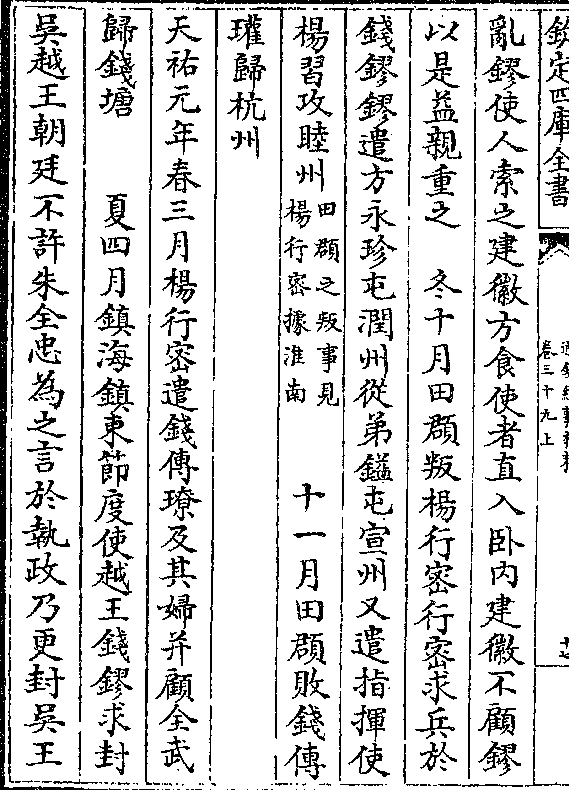 欽定四庫全書
卷三十九上
亂鏐使人索之建徽方食使者直入卧内建徽不顧鏐
以是益親重之　冬十月田頵叛楊行密行密求兵於
錢鏐鏐遣方永珍屯潤州從弟鎰屯宣州又遣指揮使
楊習攻睦州
田頵之叛事見
楊行密據淮南
十一月田頵敗錢傳
瓘歸杭州
天祐元年春三月楊行密遣錢傳璙及其婦并顧全武
歸錢塘　夏四月鎮海鎮東節度使越王錢鏐求封
吳越王朝廷不許朱全忠為之言於執政乃更封吳王